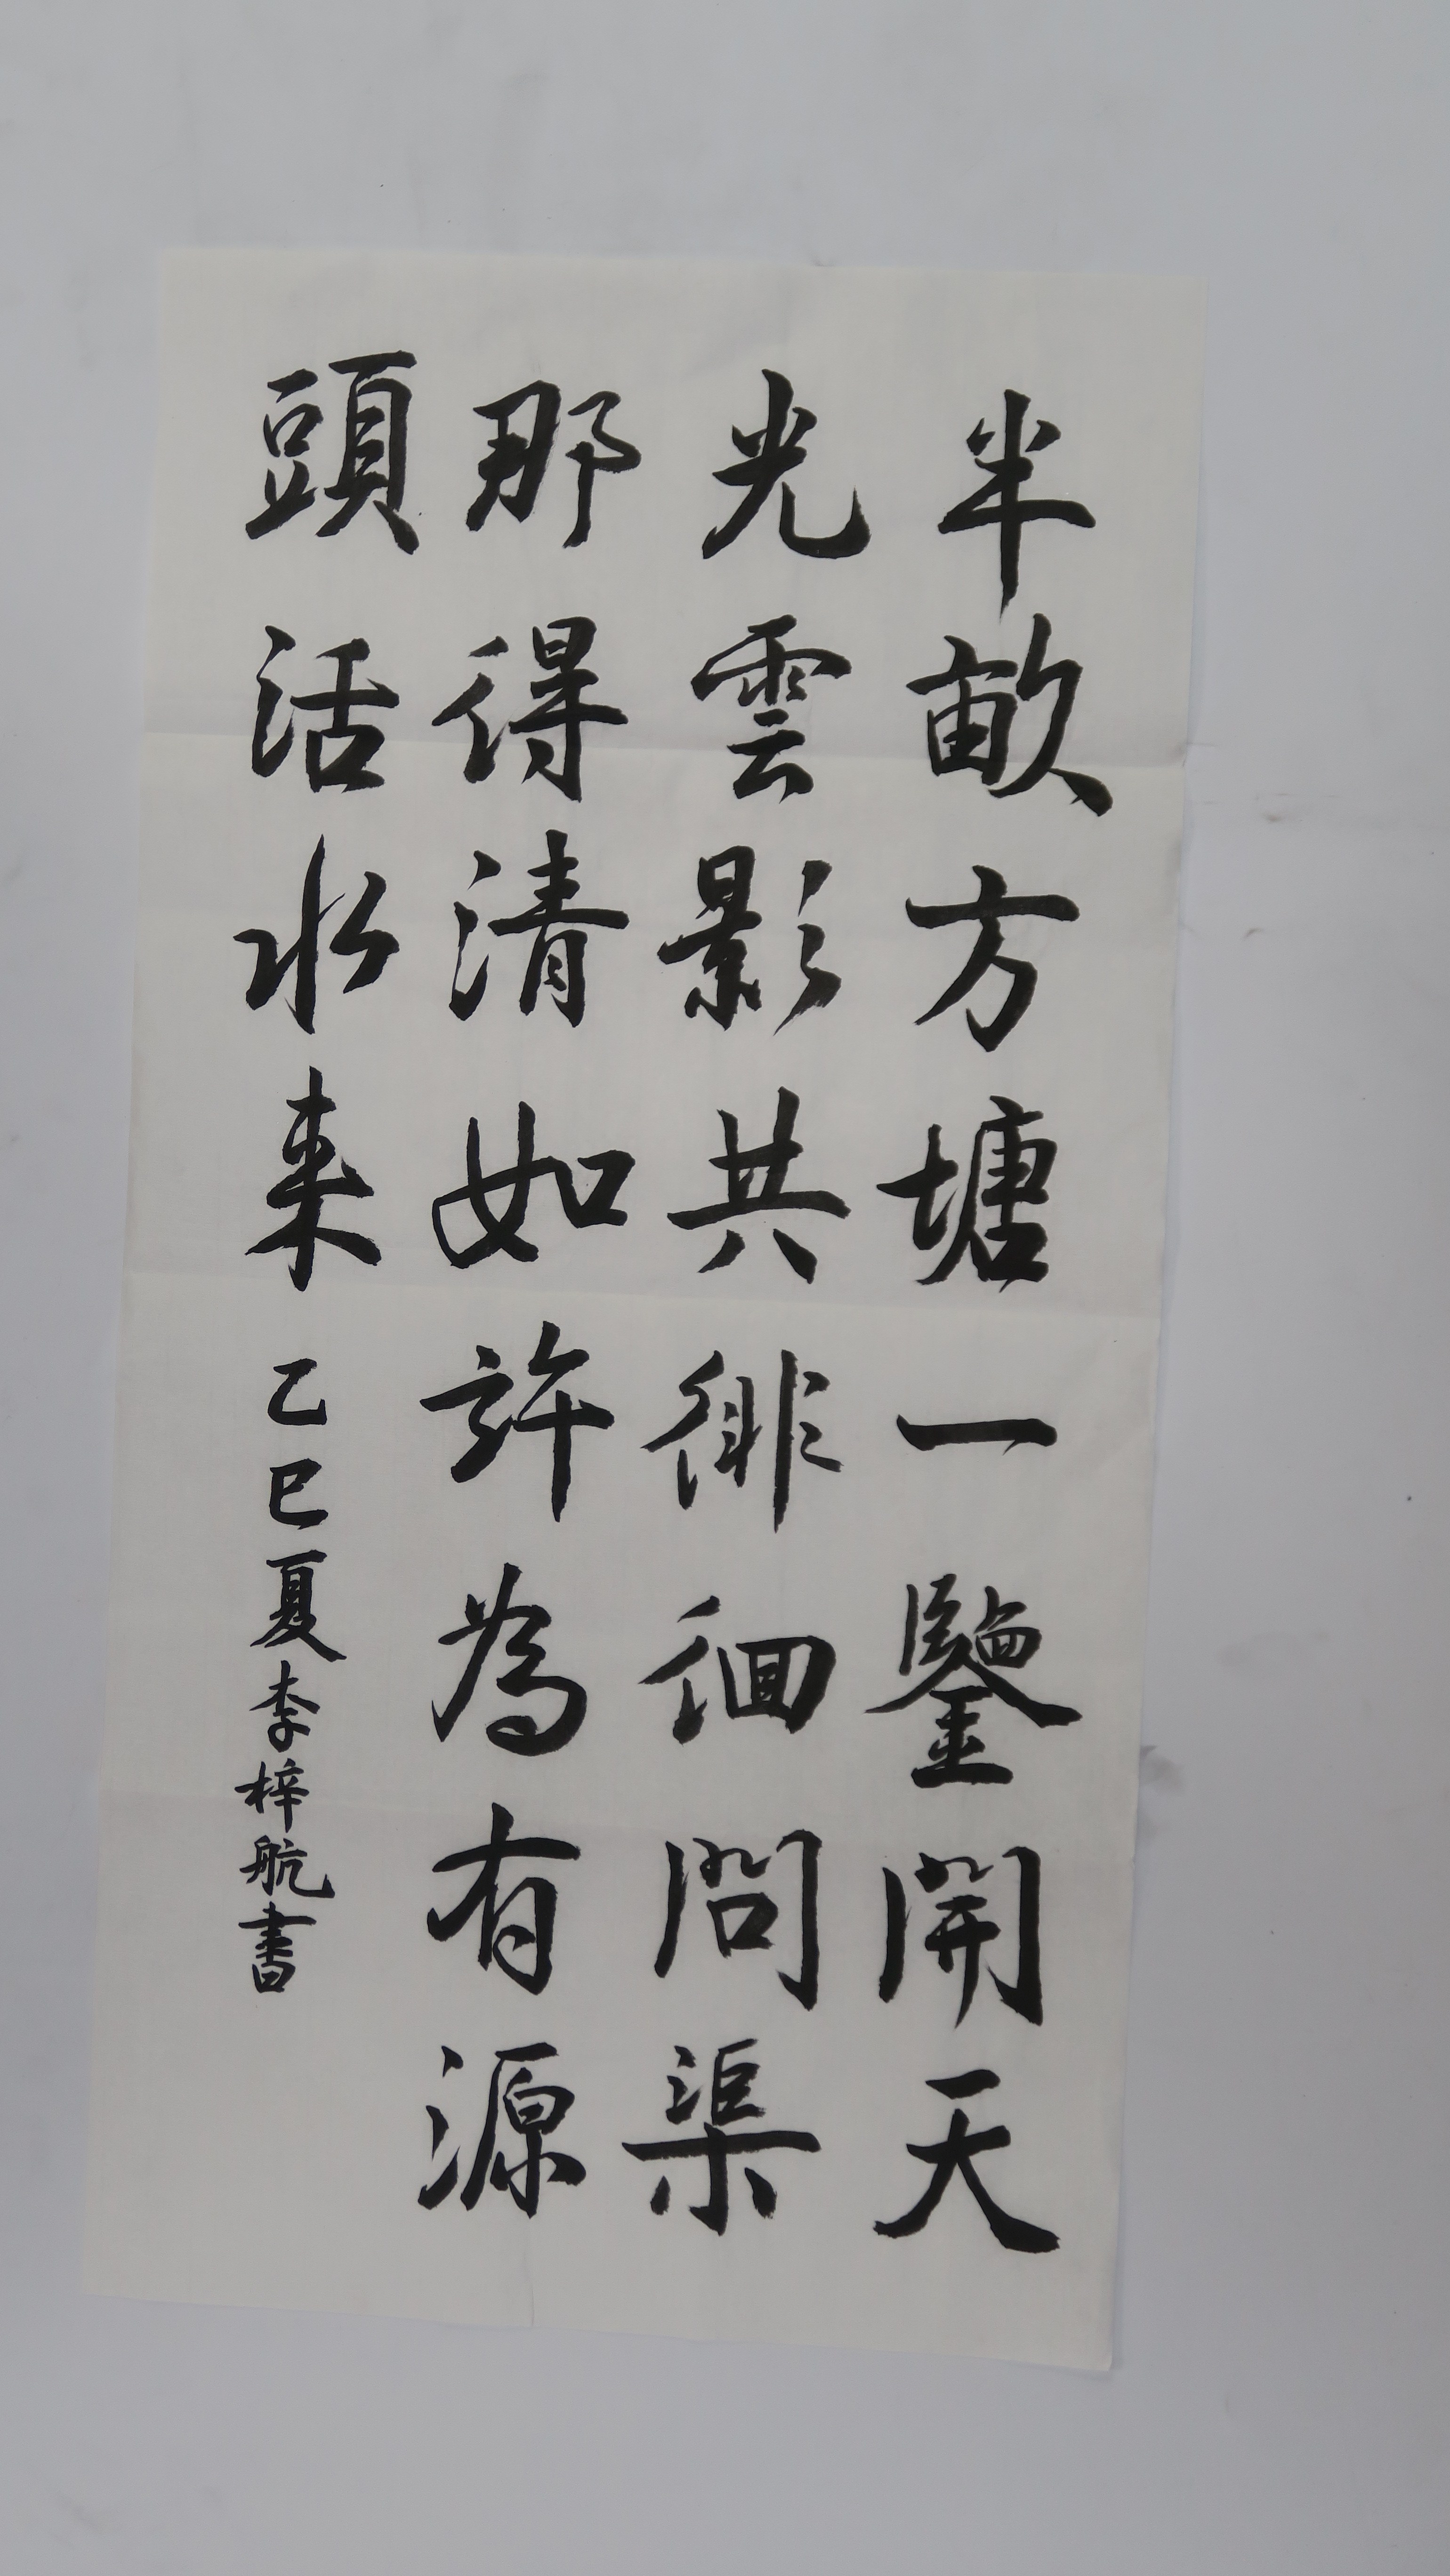 半畝方塘一鑒開天
光雲影共徘徊問渠
那得清如許為有源
頭活水来乙巳夏李梓航書